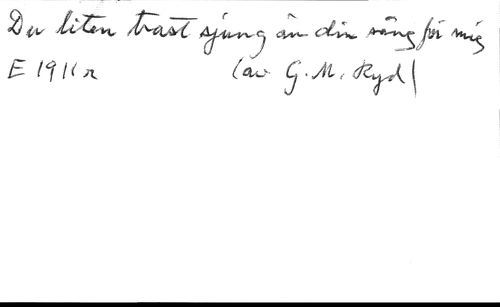 Du liten trast sjung än din sång för mig
E 1911 r (av G. M. Ryd)